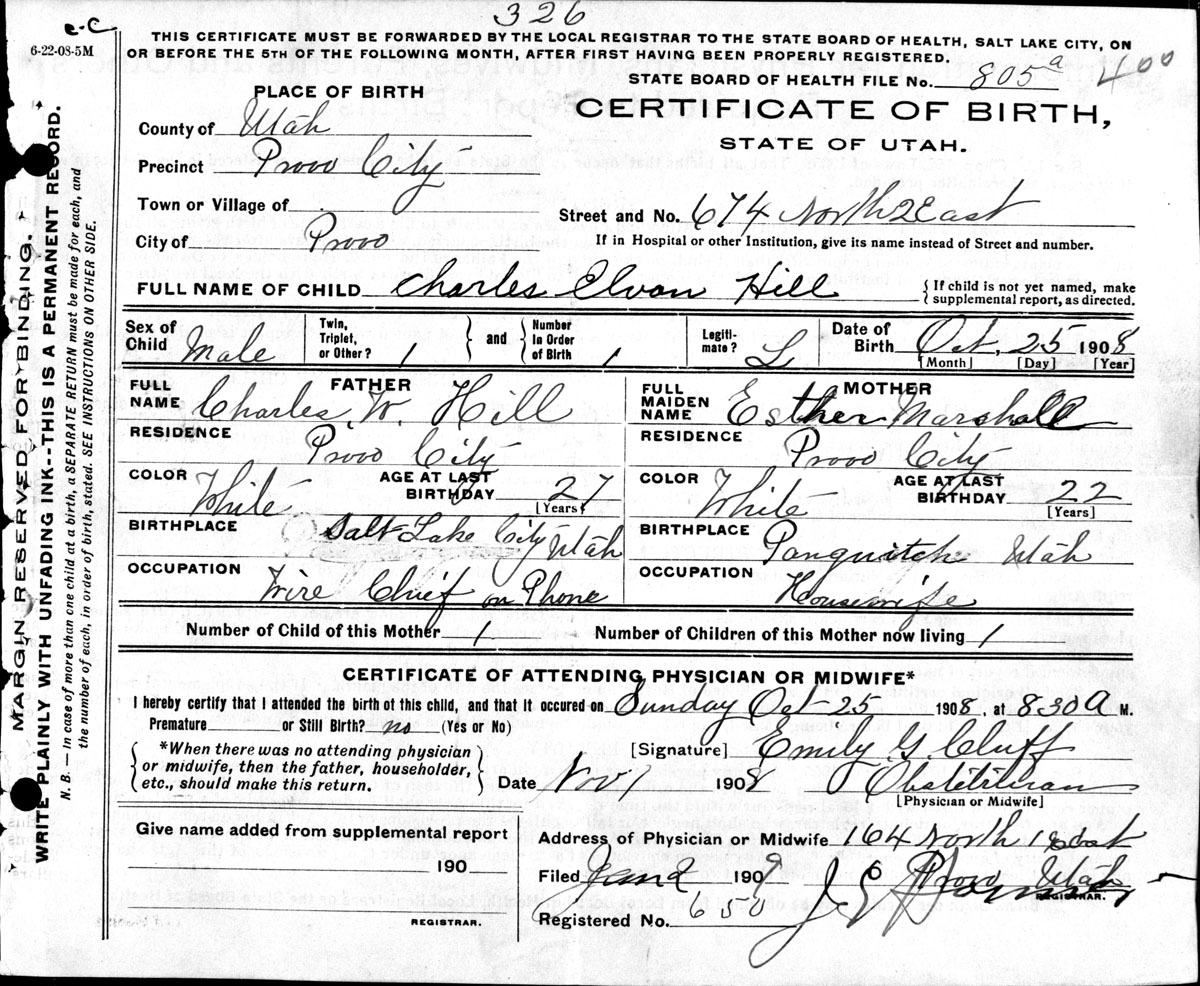 326
e-C
6-22-08-5M
THIS CERTIFICATE MUST BE FORWARDED BY THE LOCAL REGISTRAR TO THE STATE BOARD OF HEALTH, SALT LAKE CITY, ON
OR BEFORE THE 5TH OF THE FOLLOWING MONTH, AFTER FIRST HAVING BEEN PROPERLY REGISTERED.
STATE BOARD OF HEALTH FILE No. 805a 400
MARGIN RESERVED FOR BINDING.
WRITE PLAINLY WITH UNFADING INK--THIS IS A PERMANENT RECORD.
N. B. — In case of more than one child at a birth, a SEPARATE RETURN must be made for each, and
the number of each, in order of birth, stated. SEE INSTRUCTIONS ON OTHER SIDE.
PLACE OF BIRTH
CERTIFICATE OF BIRTH,
STATE OF UTAH.
County of Utah
Precinct Provo City
Town or Village of
Street and No. 674 North 2 East
City of Provo
If in Hospital or other Institution, give its name instead of Street and number.
FULL NAME OF CHILD Charles Elvon Hill
{ If child is not yet named, make
supplemental report, as directed.
Sex of Child Male Twin, Triplet, or Other? 1 } and { Number In Order of Birth 1 Legiti-mate? L Date of Birth Oct, 25 1908
[Month] [Day] [Year]
FATHER
FULL NAME Charles W. Hill
RESIDENCE Provo City
COLOR White AGE AT LAST BIRTHDAY 27 [Years]
BIRTHPLACE Salt Lake City Utah
OCCUPATION Wire Chief on Phone
MOTHER
FULL MAIDEN NAME Esther Marshall
RESIDENCE Provo City
COLOR White AGE AT LAST BIRTHDAY 22 [Years]
BIRTHPLACE Panguitch Utah
OCCUPATION Housewife
Number of Child of this Mother 1 Number of Children of this Mother now living 1
CERTIFICATE OF ATTENDING PHYSICIAN OR MIDWIFE*
I hereby certify that I attended the birth of this child, and that it occured on Sunday Oct 25 1908, at 8.30 A M.
Premature or Still Birth? no (Yes or No)
{ *When there was no attending physician
or midwife, then the father, householder,
etc., should make this return. }
[Signature] Emily G. Cluff
Date Nov 1 1908 Obstetitrican
[Physician or Midwife]
Give name added from supplemental report
190
REGISTRAR.
Address of Physician or Midwife 164 North 1 East
Provo Utah
Filed Jan 2 1909
REGISTRAR.
Registered No. 650